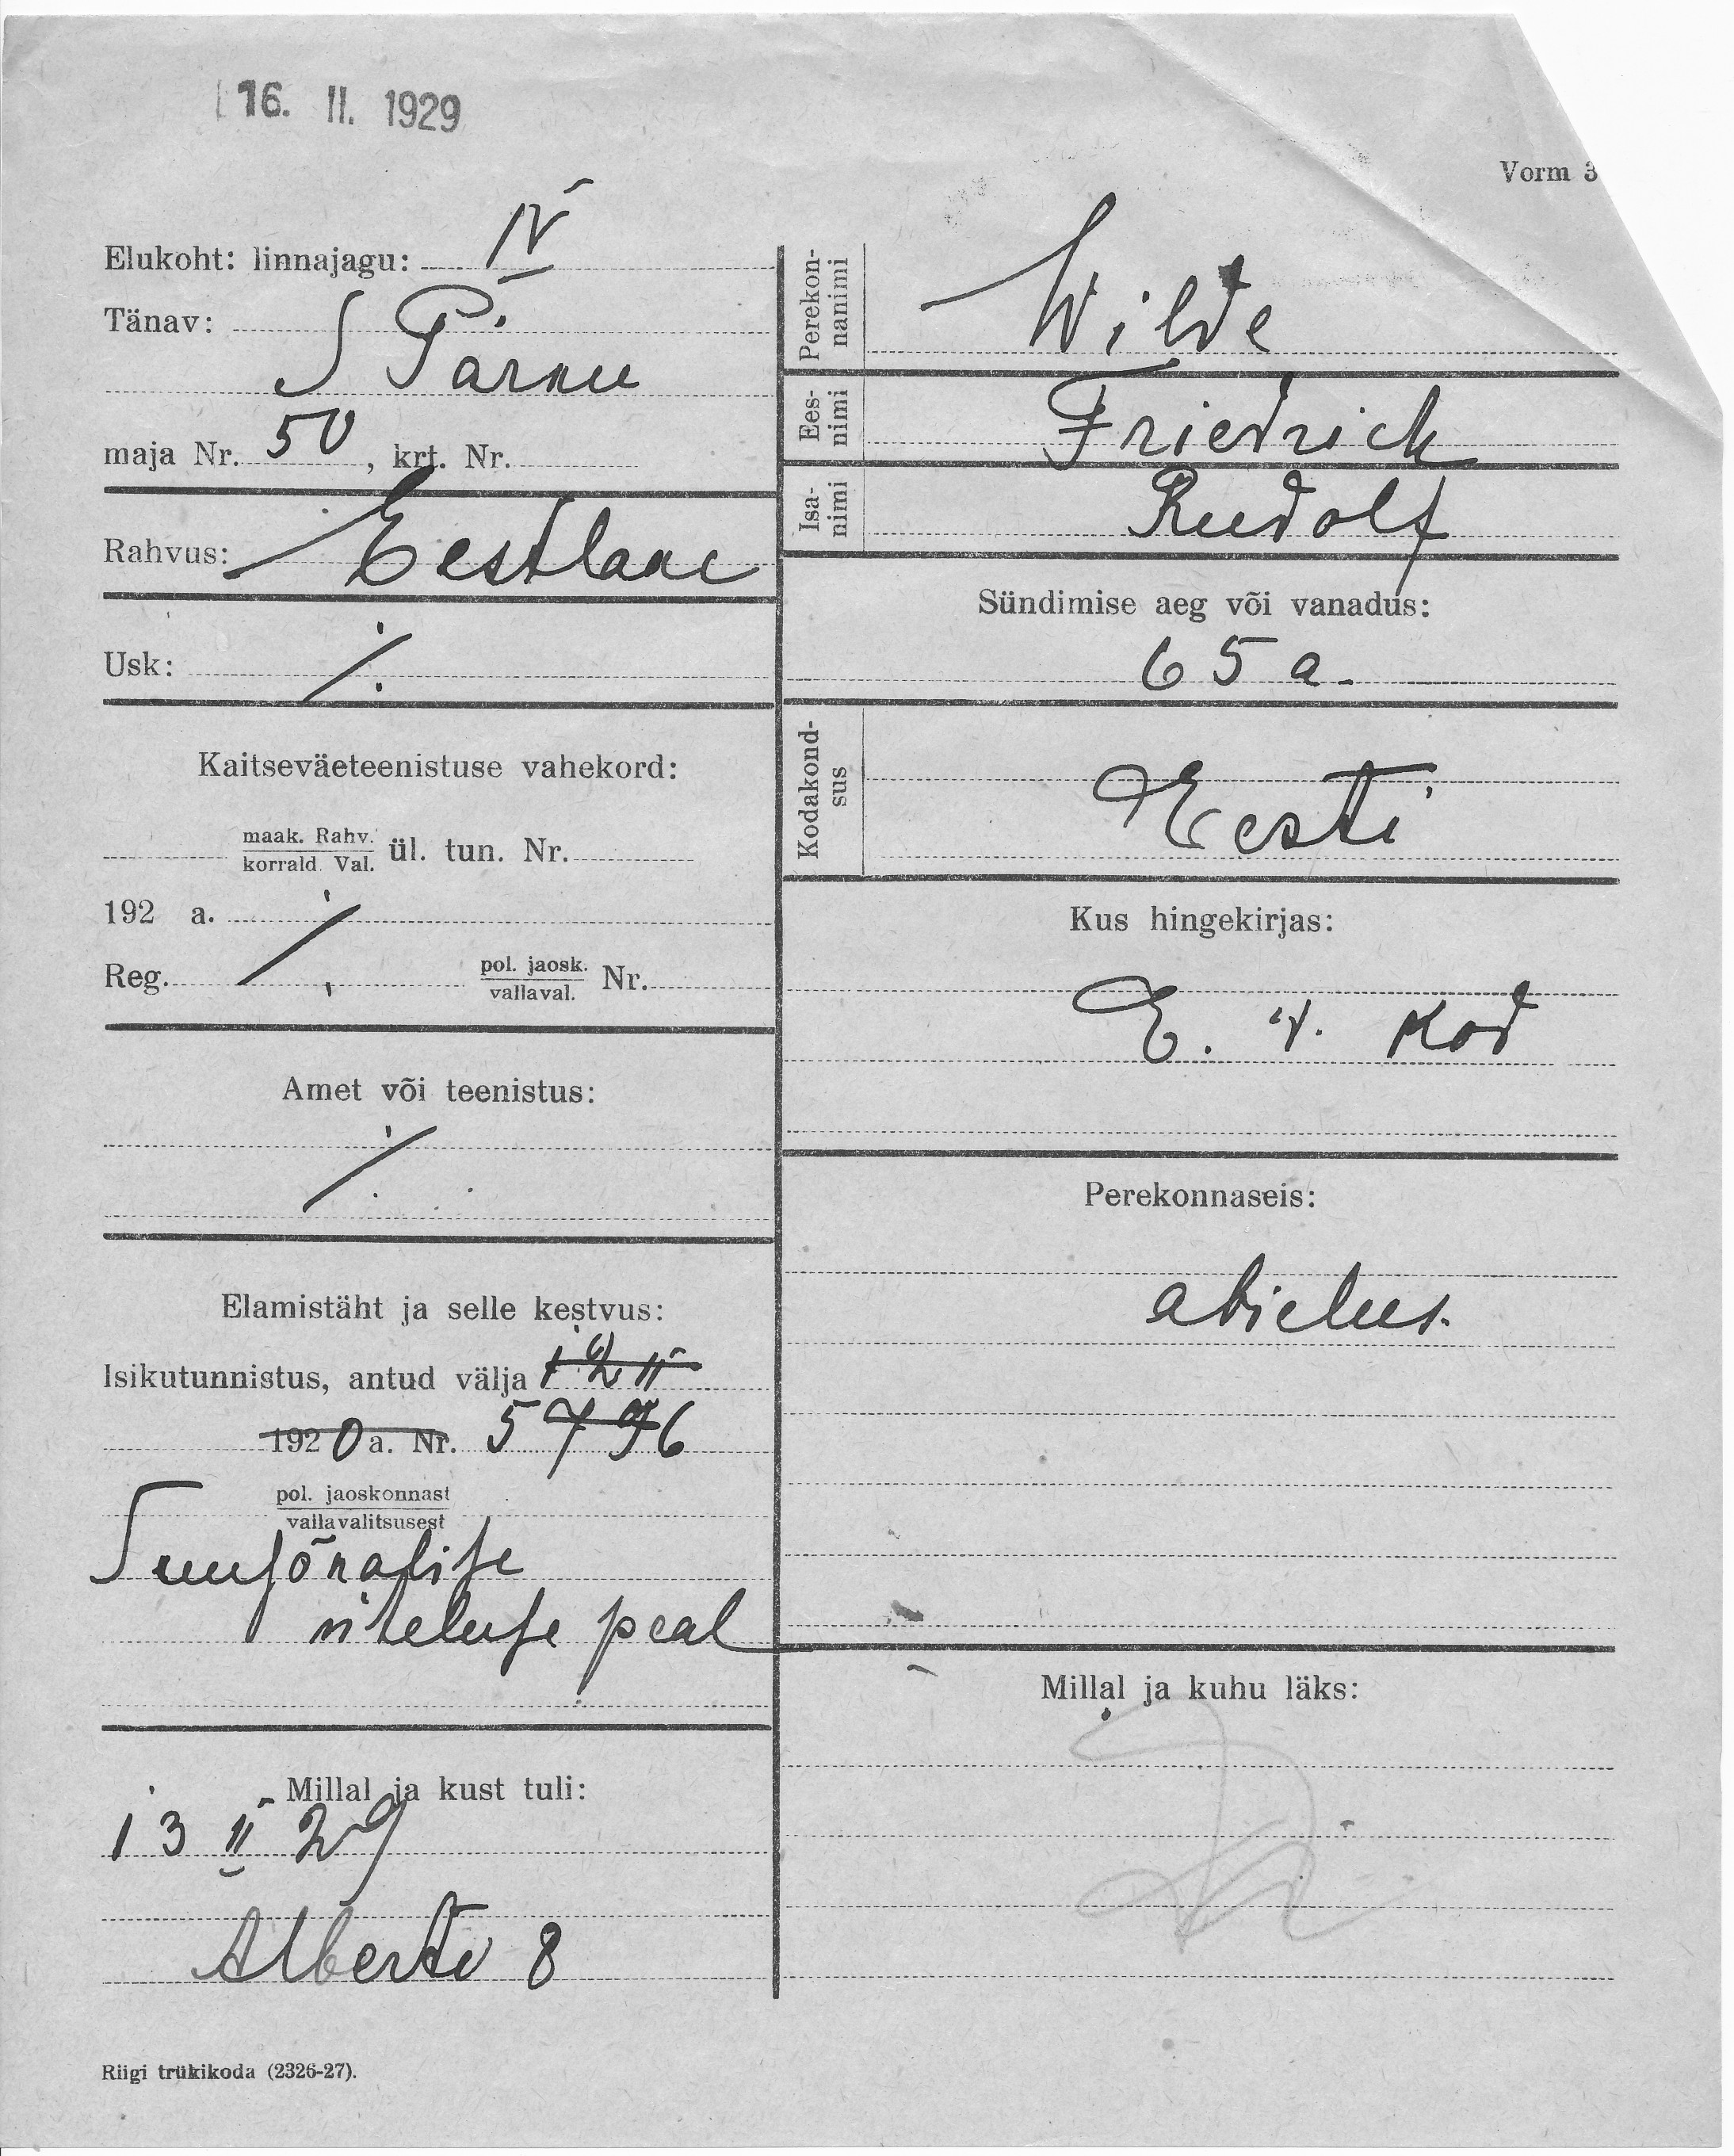 16. II. 1929
Vorm 3
Elukoht: linnajagu: IV
Tänav: S Pärnu
maja Nr. 50, krt. Nr.
Rahvus: Eestlane
Usk: ·/.
Kaitseväeteenistuse vahekord:
maak. Rahv.
korrald. Val. ül. tun. Nr.
192 a. ·/.
Reg. pol. jaosk.
vallaval. Nr.
Amet või teenistus:
·/.
Elamistäht ja selle kestvus:
Isikutunnistus, antud välja 12 II
1920 a. Nr. 5796
pol. jaoskonnast
vallavalitsusest
Suusõnalise
üteluse peal
Millal ja kust tuli:
13 II 29
Alberti 8
Riigi trükikoda (2326-27).
Perekon-
nanimi Wilde
Ees-
nimi Friedrich
Isa-
nimi Rudolf
Sündimise aeg või vanadus:
65 a.
Kodakond-
sus Eesti
Kus hingekirjas:
E. v. kod
Perekonnaseis:
abielus.
Millal ja kuhu läks: